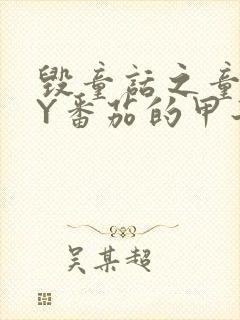 毁童话之童
Y番茄的甲
吴某超